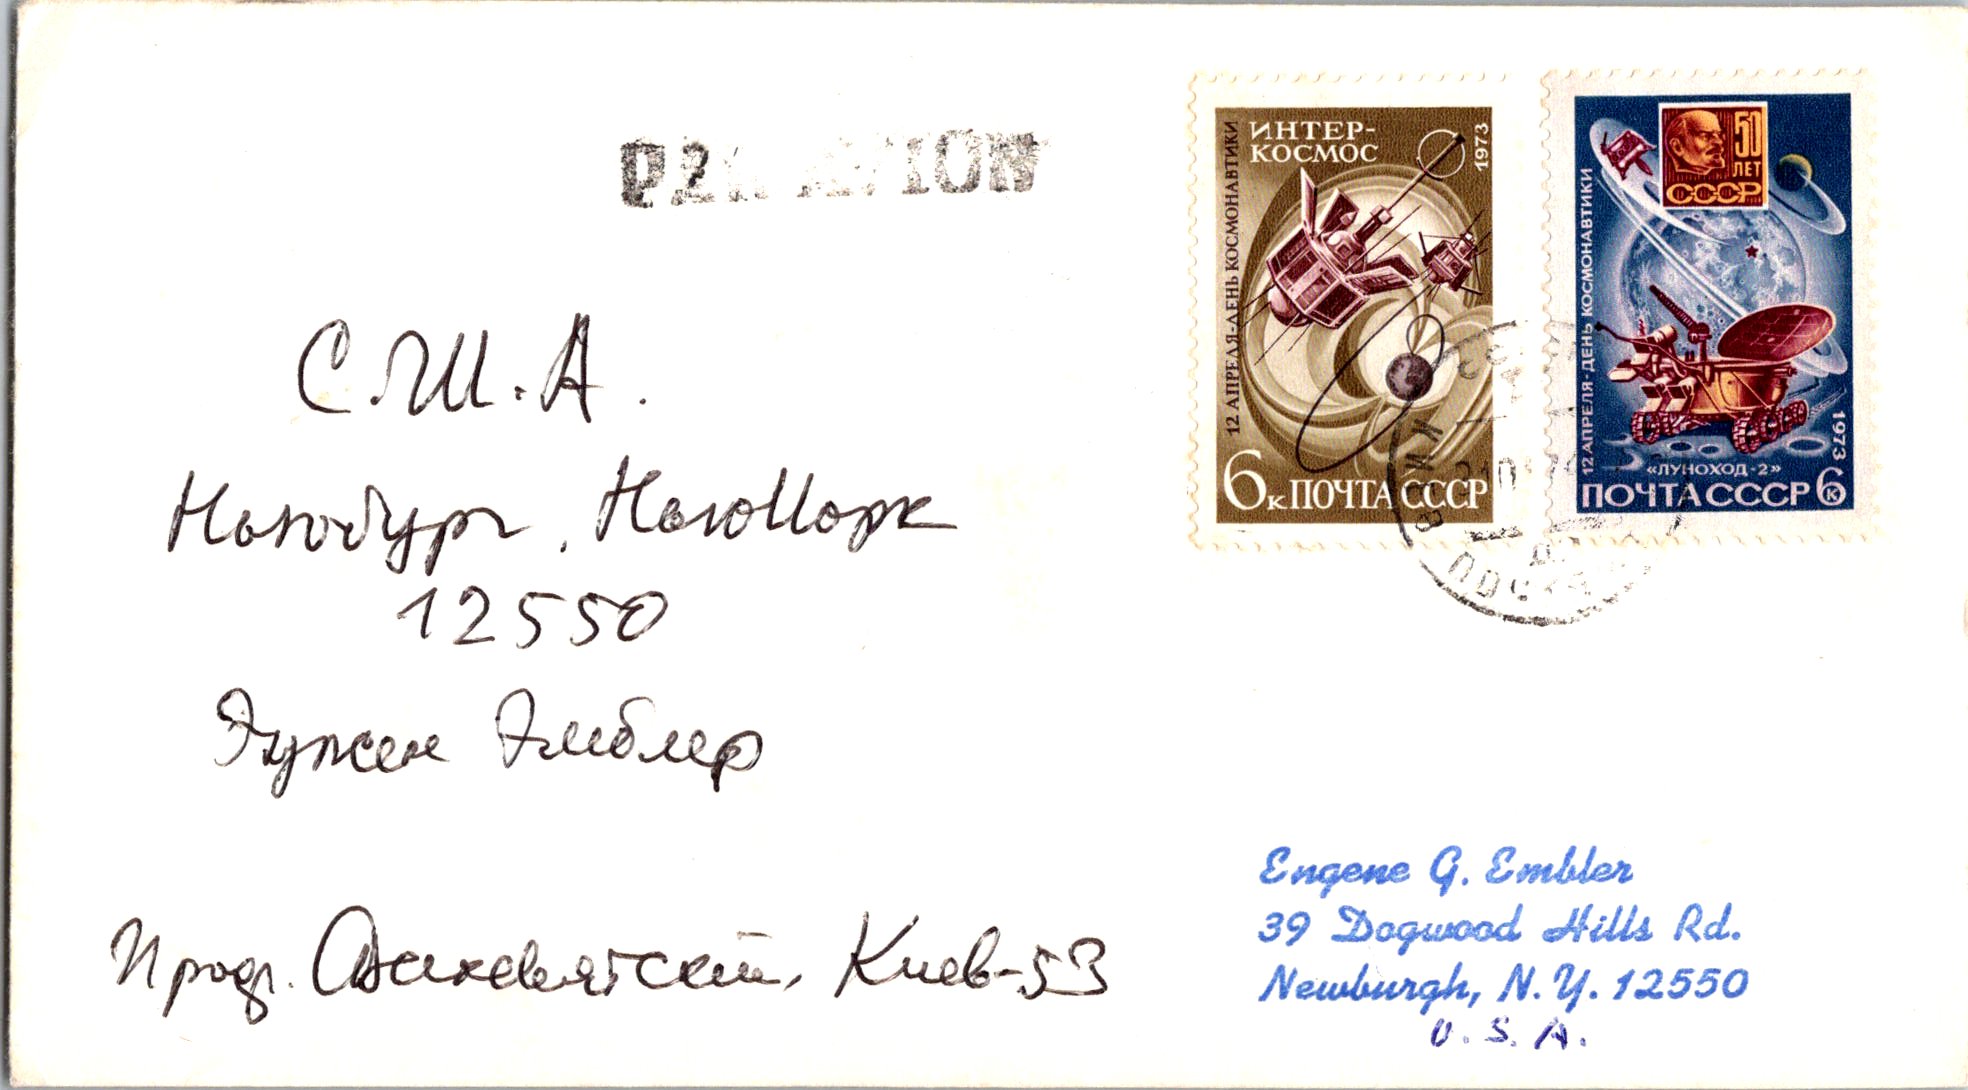 PAR AVION
ИНТЕР-
КОСМОС
1973
12 АПРЕЛЯ-ДЕНЬ КОСМОНАВТИКИ
6к ПОЧТА СССР
50
ЛЕТ
СССР
12 АПРЕЛЯ-ДЕНЬ КОСМОНАВТИКИ
1973
«ЛУНОХОД-2»
ПОЧТА СССР 6к
С.Ш.А.
Ньюбург, НьюЙорк
12550
Эужен Эмблер
Проф. Киев-53
Eugene G. Embler
39 Dogwood Hills Rd.
Newburgh, N.Y. 12550
U.S.A.